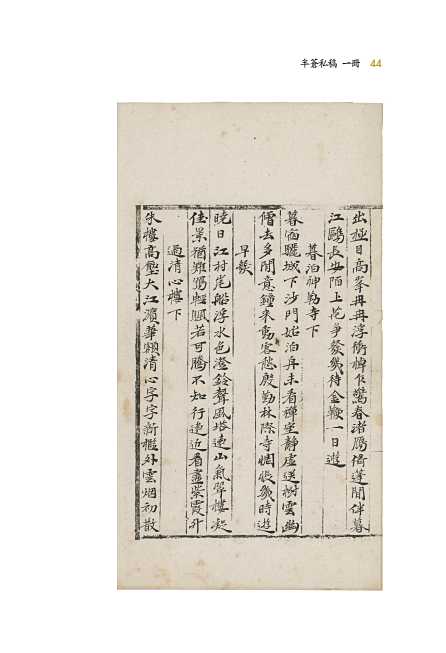 半蒼私稿 一冊 44
出極目高峯冉冉浮衝帷乍驚春渚鴈倚蓬閒伴暮
江鷗長安陌上花爭發幾待金鞭一日遊
暮泊神勒寺下
暮宿驪城下沙門姑泊舟未看禪室靜虛送樹雲幽
僧去多閒意鐘來動客愁殷勤林際寺惆悵幾時遊
早發
曉日江村尾船浮水色澄鈴聲風塔遠山氣翠樓凝
佳景猶難寫輕颿若可騰不知行遠近看盡紫霞升
過清心樓下
朱樓高壓大江濱華額清心字字新檻外雲烟初散